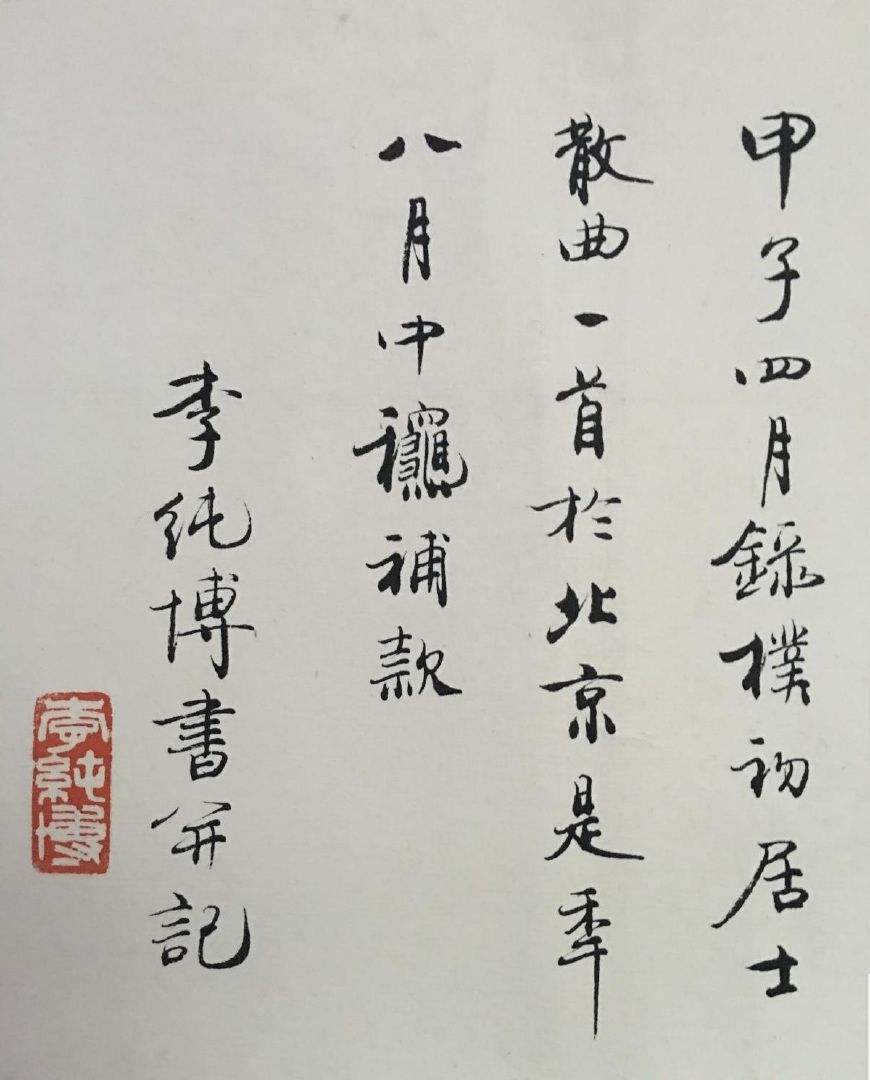 甲子四月錄樸初居士
散曲一首於北京是秊
八月中龝補款
李純博書并記
李純博